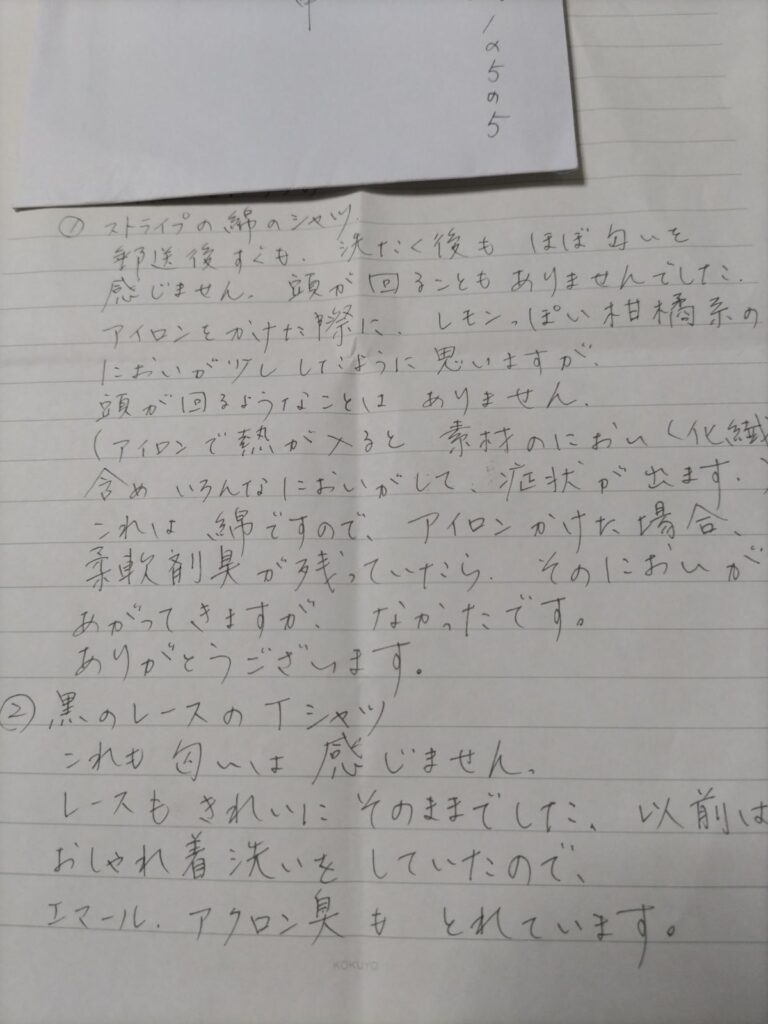 1の5の5
① ストライプの綿のシャツ.
郵送後すぐも. 洗たく後も ほぼ匂いを
感じません. 頭が回ることもありませんでした.
アイロンをかけた際に、レモンっぽい柑橘系の
においが少ししたように思いますが、
頭が回るようなことは ありません.
(アイロンで熱が入ると 素材のにおい(化繊
含め いろんなにおいがして、症状が出ます.)
これは 綿ですので、アイロンかけた場合、
柔軟剤臭が残っていたら. そのにおいが
あがってきますが、なかったです。
ありがとうございます。
② 黒のレースのTシャツ
これも 匂いは 感じません。
レースも きれいに そのままでした、以前は
おしゃれ着洗いを していたので、
エマール. アクロン臭も とれています。
KOKUYO